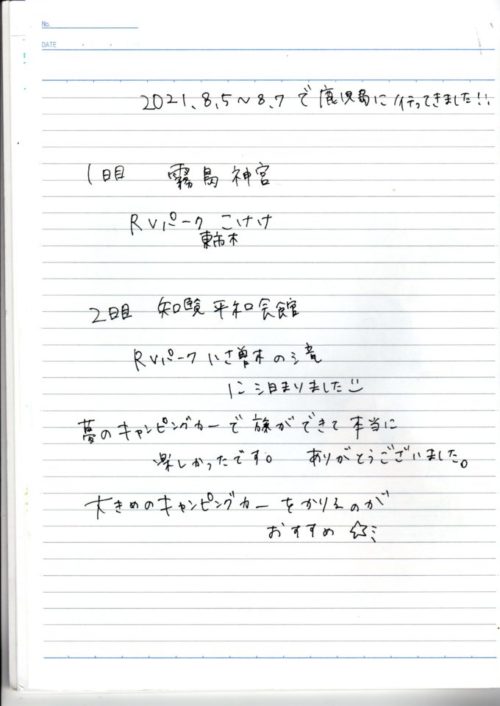 No.
DATE
2021.8.5~8.7で鹿児島に行ってきました!!
1日目 霧島神宮
RVパーク こけけ
東市木
2日目 知覧平和会館
RVパーク いさ曽木の滝
に泊まりました
夢のキャンピングカーで旅ができて本当に
楽しかったです。 ありがとうございました。
大きめのキャンピングカーをかりるのが
おすすめ☆ミ